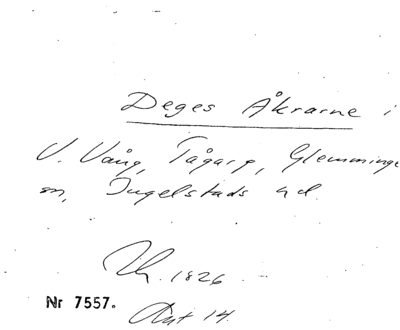 Deges Åkrarne i
V. Vång, Tågarp, Glemminge
sn, Ingelstads hd.
1826
Nr 7557.
Ant 14.